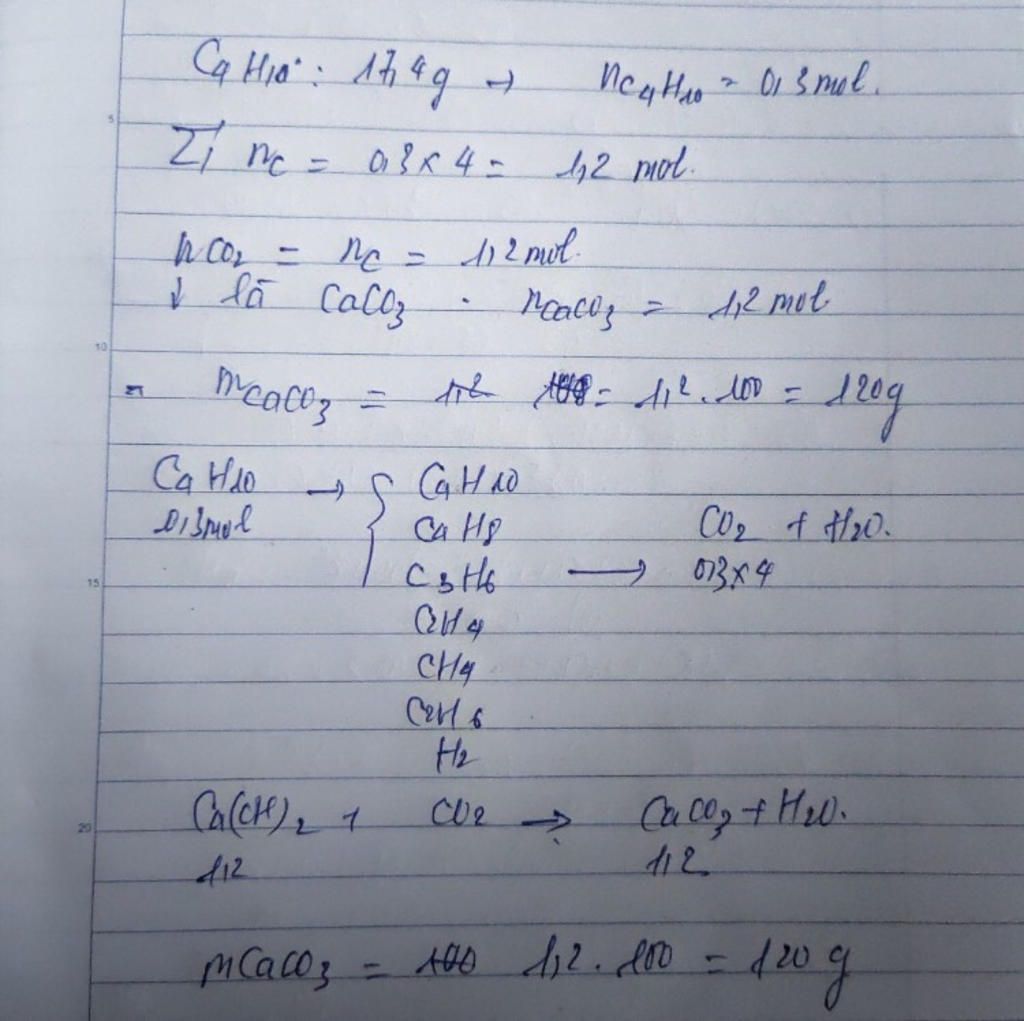 C4H10 : 17,4g → nC4H10 = 0,3mol.
Σ nC = 0,3 x 4 = 1,2 mol.
nCO2 = nC = 1,2mol.
↓ là CaCO3 . nCaCO3 = 1,2mol
= mCaCO3 = 1,2 100 = 1,2.100 = 120g
C4H10 → { C4H10
0,3mol C4H8 CO2 + H2O.
C3H6 → 0,3x4
C2H4
CH4
C2H6
H2
Ca(OH)2 + CO2 → CaCO3 + H2O.
1,2 1,2
mCaCO3 = 100 1,2.100 = 120g
5
10
15
20